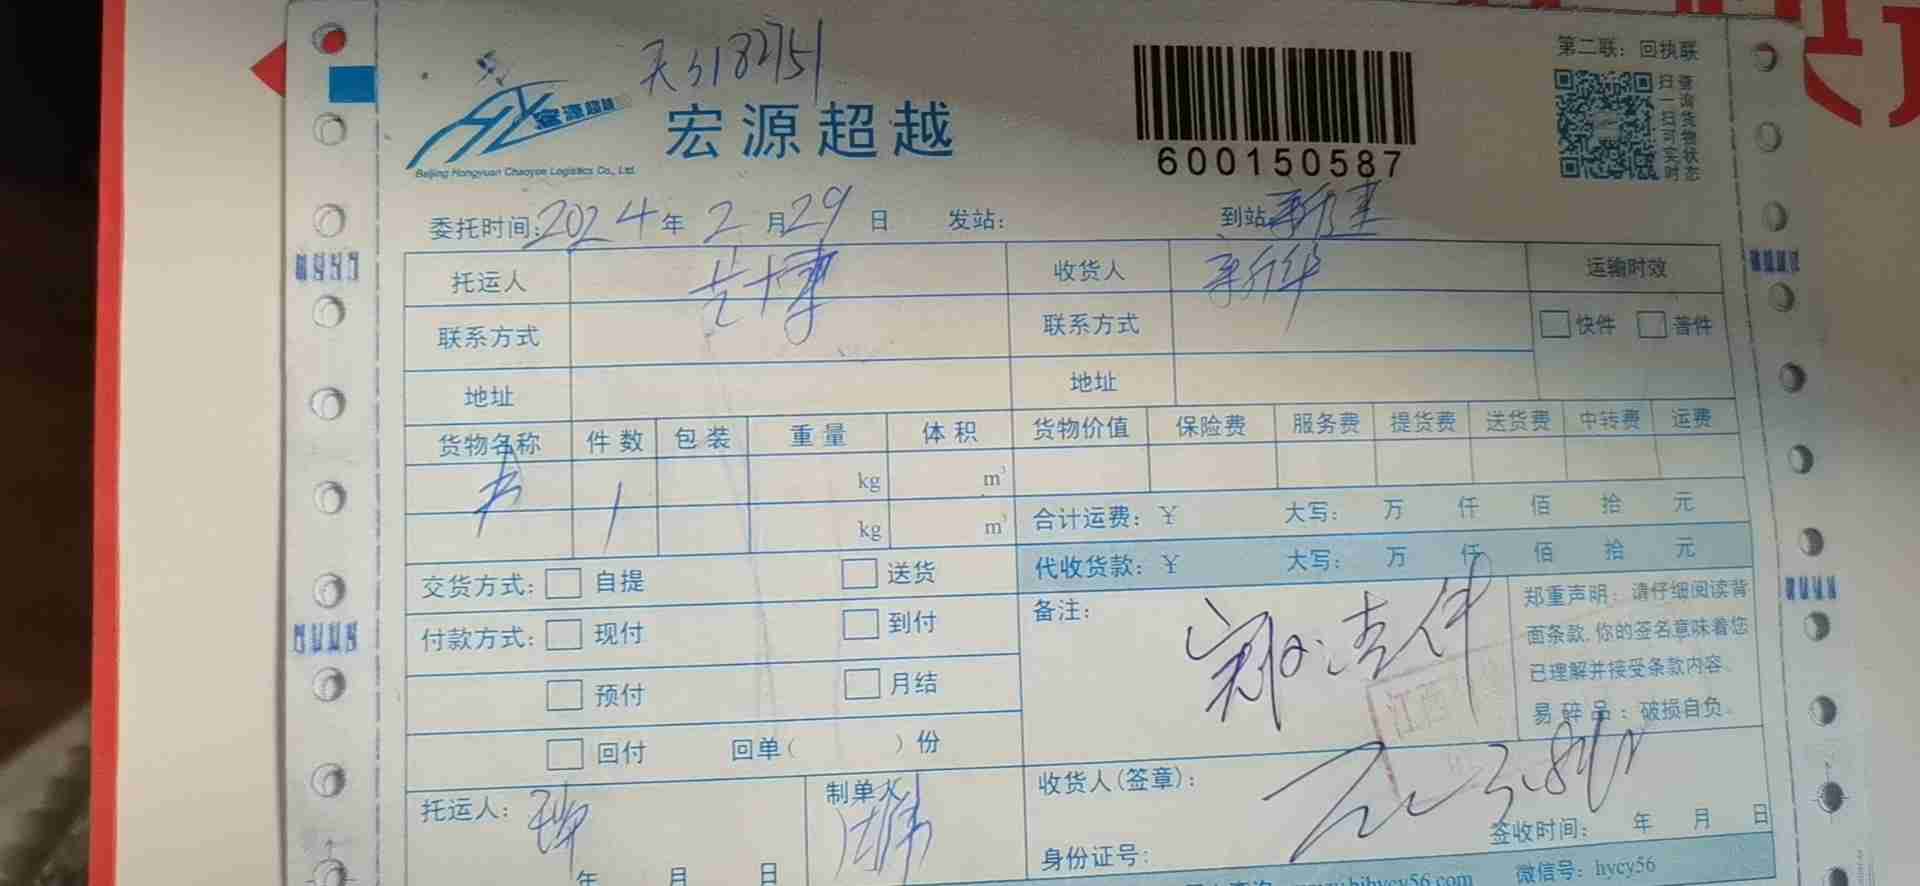 第二联：回执联
宏源超越
宏源超越
Beijing Hongyuan Chaoyue Logistics Co., Ltd.
600150587
扫一扫可实时
查询货物状态
委托时间：2024年2月29日 发站： 到站：
托运人 收货人 新华 运输时效
联系方式 联系方式 快件 普件
地址 地址
货物名称 件数 包装 重量 体积 货物价值 保险费 服务费 提货费 送货费 中转费 运费
书 1 kg m³
kg m³
合计运费：￥ 大写： 万 仟 佰 拾 元
代收货款：￥ 大写： 万 仟 佰 拾 元
交货方式： 自提 送货
付款方式： 现付 到付
预付 月结
回付 回单( )份
备注：
郑重声明：请仔细阅读背
面条款,你的签名意味着您
已理解并接受条款内容。
易碎品：破损自负。
江西
托运人： 制单人
年 月 日
收货人(签章)：
签收时间： 年 月 日
身份证号：
微信号：hycy56